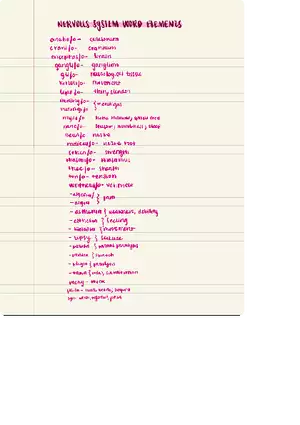 NERVOUS SYSTEM WORD ELEMENTS
cerebell/o- cerebellum
crani/o- cranium
encephal/o- brain
gangli/o- ganglion
gli/o- tissue
kinesi/o- movement
lept/o- thin, slender
mening/o-
meningi/o- } meninges
myel/o- bone marrow, spinal cord
narc/o- stupor, numbness, sleep
neur/o- nerve
radicul/o- nerve root
sthen/o- strength
thalam/o- thalamus
thec/o- sheath
ton/o- tension
ventricul/o- ventricle
-algesia
-algia } pain
-asthenia { weakness, debility
-esthesia { feeling
-kinesia { movement
-lepsy { seizure
-paresis { partial paralysis
-phasia { speech
-plegia { paralysis
-taxia { order, coordination
pachy- thick
para-
syn- union, together, joined